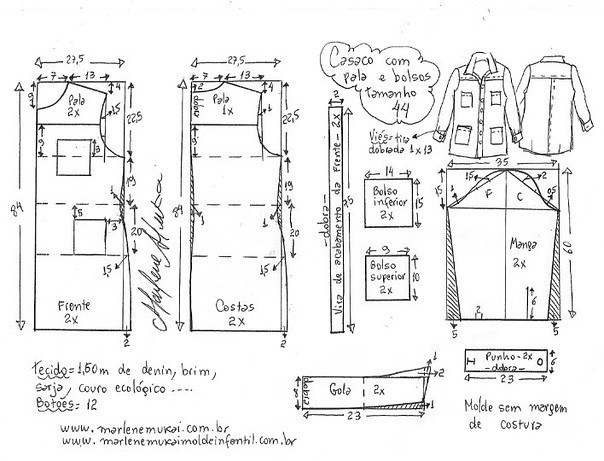 27,5
7
13
4
9
Pala
2x
1,5
1
22,5
9
3
84
19
1
8
3
20
1,5
Frente
2x
2
Marlene Mukai
27,5
7
13
4
2
dobra
Pala
1x
1
22,5
84
19
1
1
20
1,5
Costas
2x
2
Casaco com
pala e bolsos
tamanho
44
Viés=tira
dobrada 1x13
2
Vira de acabamento da Frente - 2x
-dobra-
14
Bolso
inferior
2x
15
9
Bolso
superior
2x
10
35
1,5
2
1
F
C
0,5
Manga
2x
60
2
6
5
5
Punho-2x
-dobra-
6
23
dobra
8
Gola
2x
1
2
1
23
Molde sem margem
de costura
Tecido=1,50m de denin, brim,
sarja, couro ecológico ....
Botões= 12
www.marlenemukai.com.br
www.marlenemukaimoldeinfantil.com.br